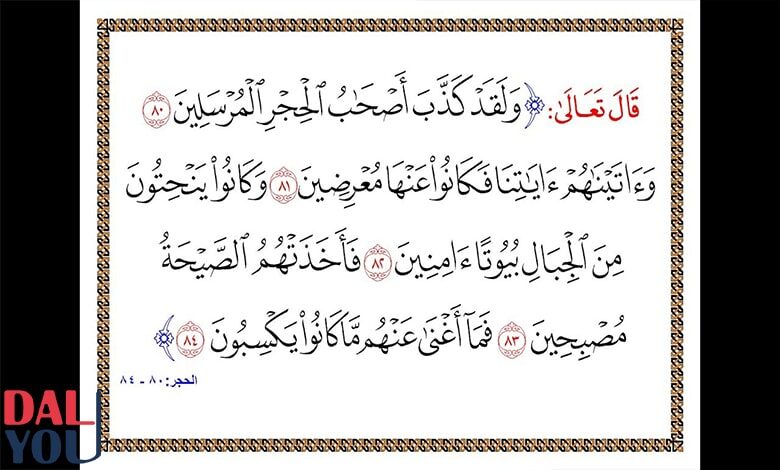 قَالَ تَعَالَىٰ: ﴿ وَلَقَدْ كَذَّبَ أَصْحَٰبُ ٱلْحِجْرِ ٱلْمُرْسَلِينَ ٨٠
وَءَاتَيْنَٰهُمْ ءَايَٰتِنَا فَكَانُوا۟ عَنْهَا مُعْرِضِينَ ٨١ وَكَانُوا۟ يَنْحِتُونَ
مِنَ ٱلْجِبَالِ بُيُوتًا ءَامِنِينَ ٨٢ فَأَخَذَتْهُمُ ٱلصَّيْحَةُ
مُصْبِحِينَ ٨٣ فَمَآ أَغْنَىٰ عَنْهُم مَّا كَانُوا۟ يَكْسِبُونَ ٨٤ ﴾
الحجر: ٨٠ - ٨٤
DAL
YOU